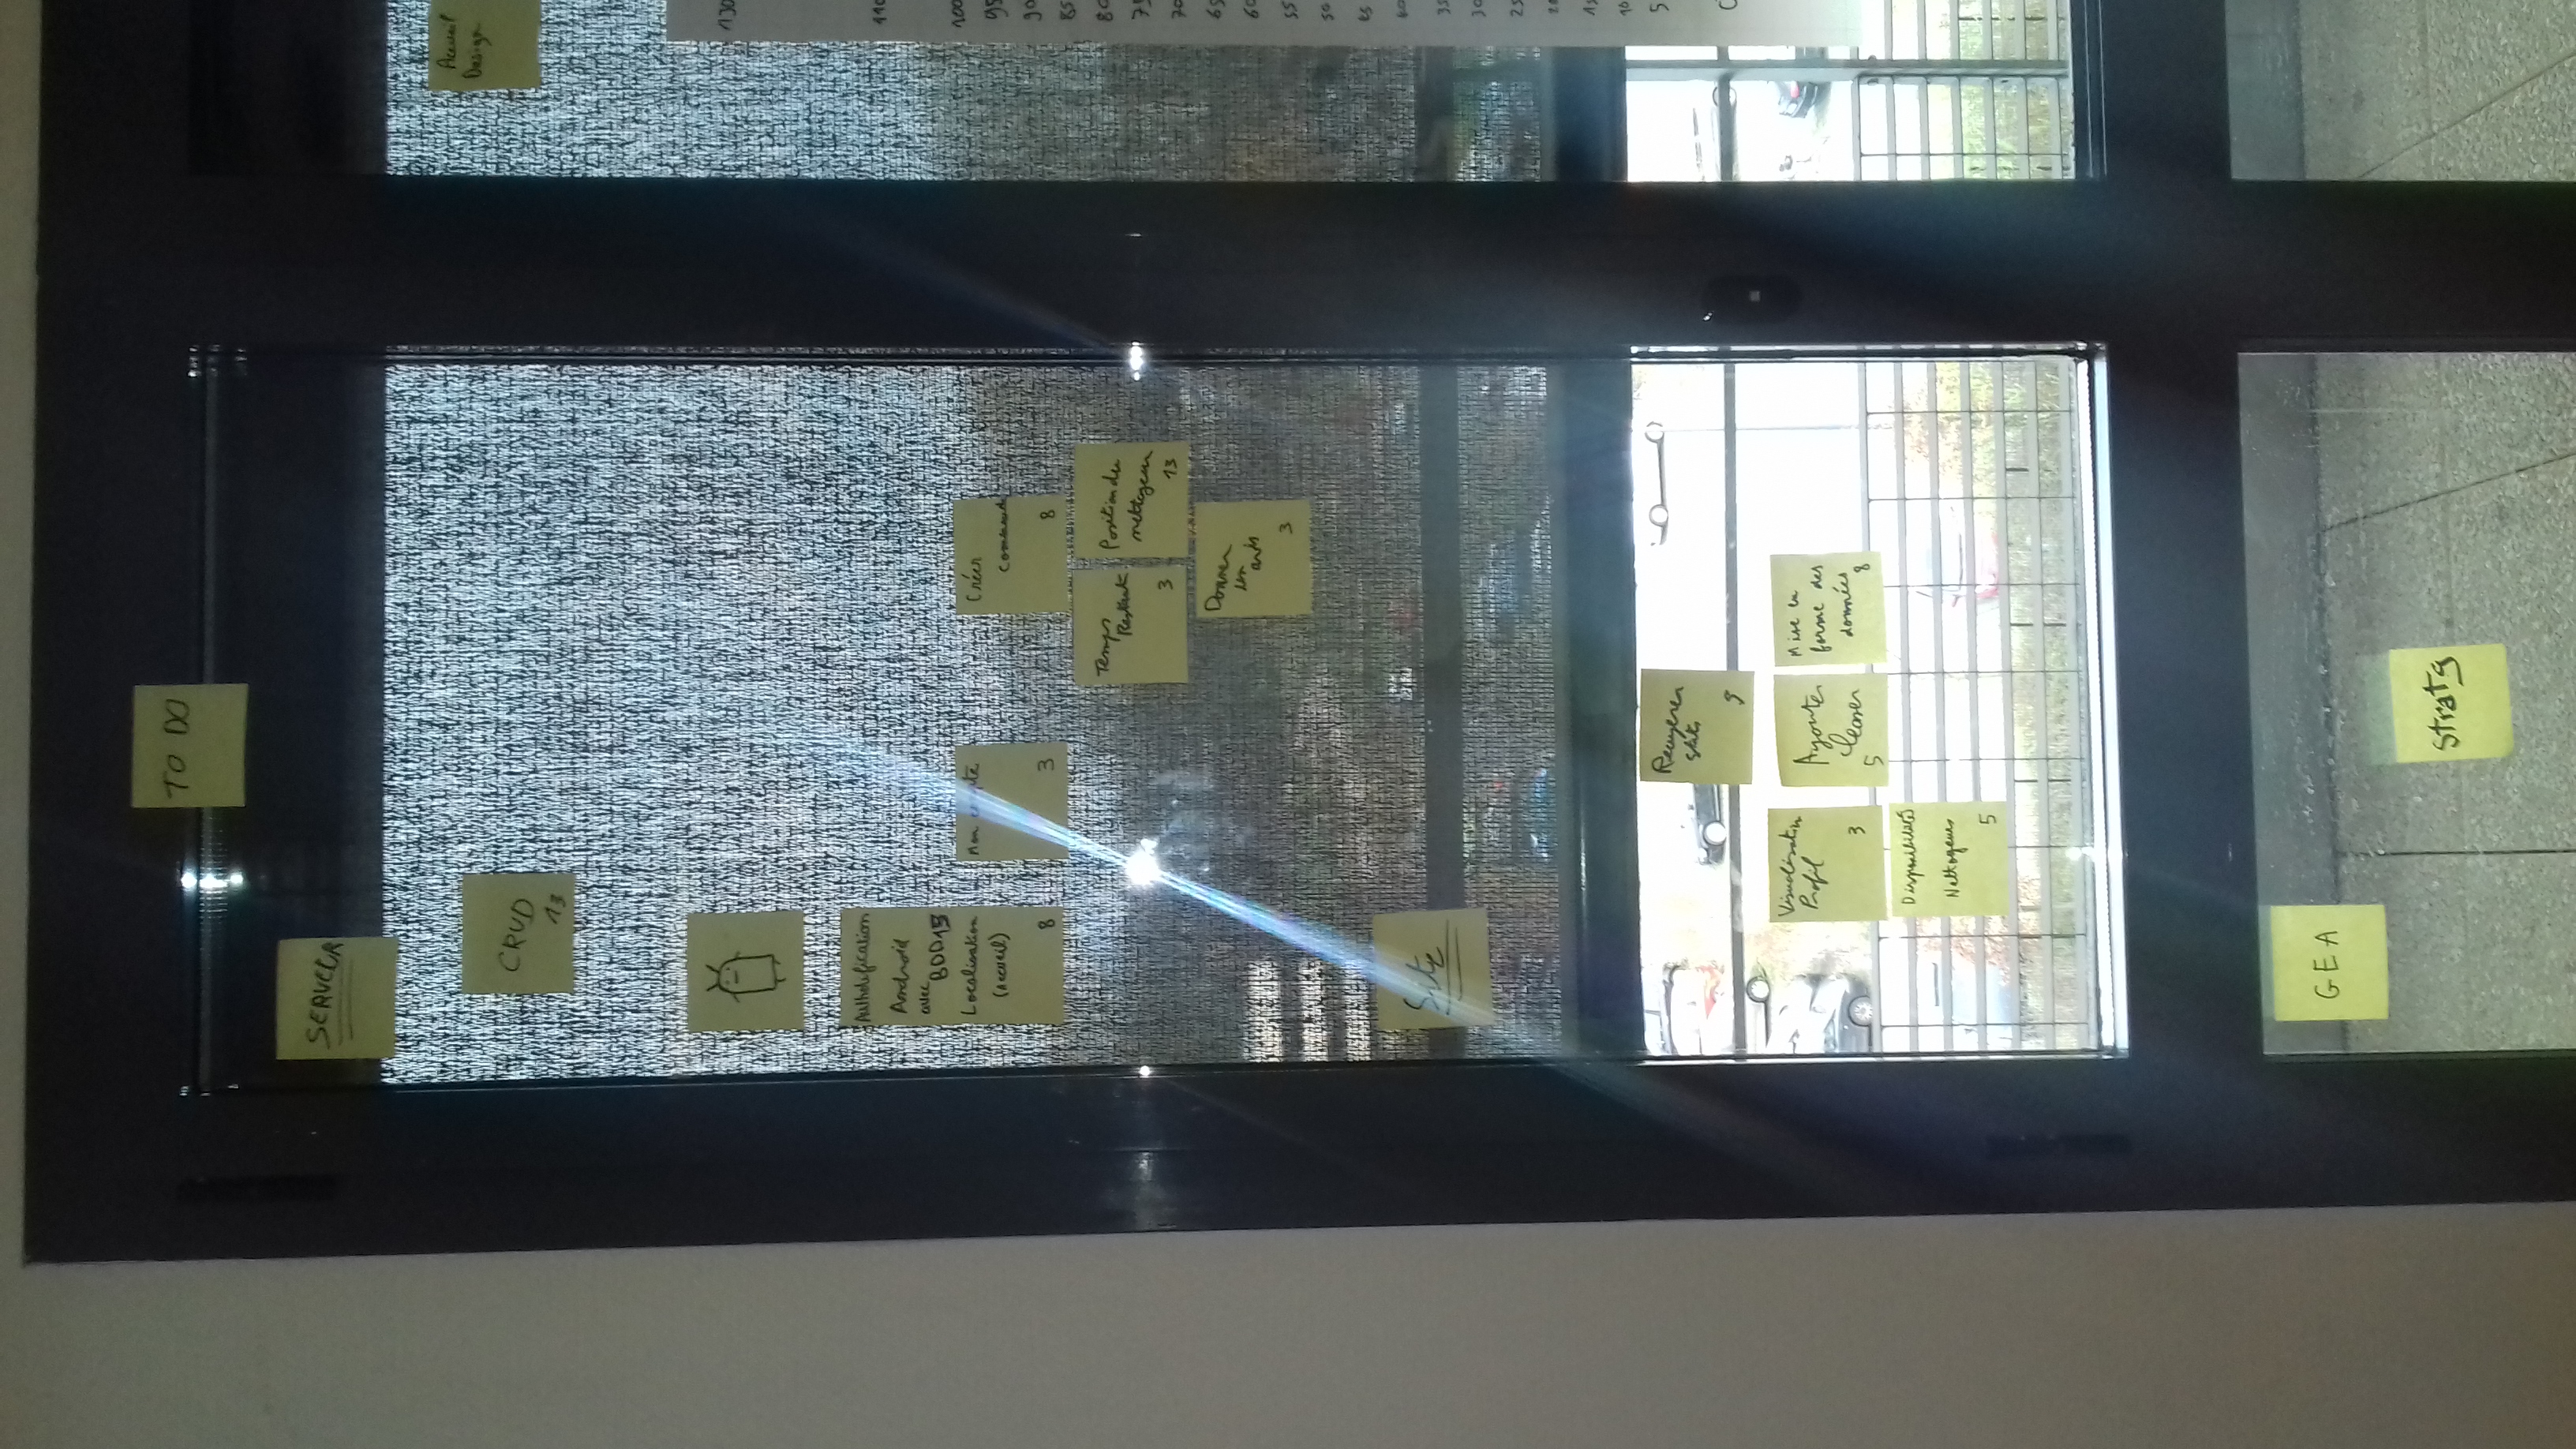 TO DO
SERVEUR
CRUD
13
Accueil
Design
Android
avec
BDD
Localisation
(Accueil)
8
Mon compte
3
Créer
Commande
8
Temps
Restant
3
Position du
nettoyeur
13
Donner
un
avis
3
Site
stats
Visualisation
Profil
3
Ajouter
5
Mise en
forme des
données
8
Disponibilité
Nettoyeurs
5
GEA
Stratg
130
110
100
95
90
85
80
75
70
65
60
55
50
45
40
35
30
25
20
15
10
5
0